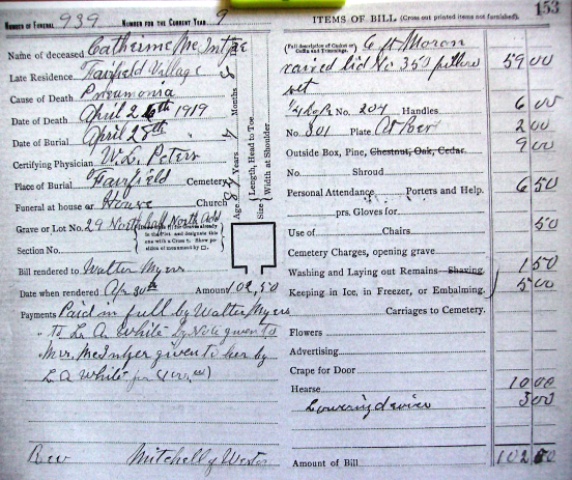 NUMBER OF FUNERAL 939 NUMBER FOR THE CURRENT YEAR 9
Name of deceased Catherine McIntire
Late Residence Fairfield Village
Cause of Death Pneumonia
Date of Death April 26th 1919
Date of Burial April 28th "
Certifying Physician W. L. Peters
Place of Burial Fairfield Cemetery
Funeral at house or House Church
Grave or Lot No. 29 North half North Add
Section No.
Age Years Months
Size Length, Head to Toe. Width at Shoulder
Bill rendered to Walter Myers
Date when rendered Apr 30th Amount 102.50
Payments Paid in full by Walter Myers
to L. A. White by Note given to
Mrs. McIntyer given to her by
L A White for
Rev Mitchell of
153
ITEMS OF BILL (Cross out printed items not furnished).
(Full description of Casket or Coffin and Trimmings. 6 ft Moron
raised lid No 350 59 00
set
No. 204 Handles 6 00
No. 301 Plate At Rest 2 00
Outside Box, Pine, Chestnut, Oak, Cedar. 9 00
No. Shroud
Personal Attendance Porters and Help. 6 50
prs. Gloves for
Use of Chairs 50
Cemetery Charges, opening grave
Washing and Laying out Remains Shaving 1 50
Keeping in Ice, in Freezer, or Embalming. 5 00
Carriages to Cemetery.
Flowers
Advertising
Crape for Door
Hearse 10 00
Lowering device 3 00
Amount of Bill 102 50